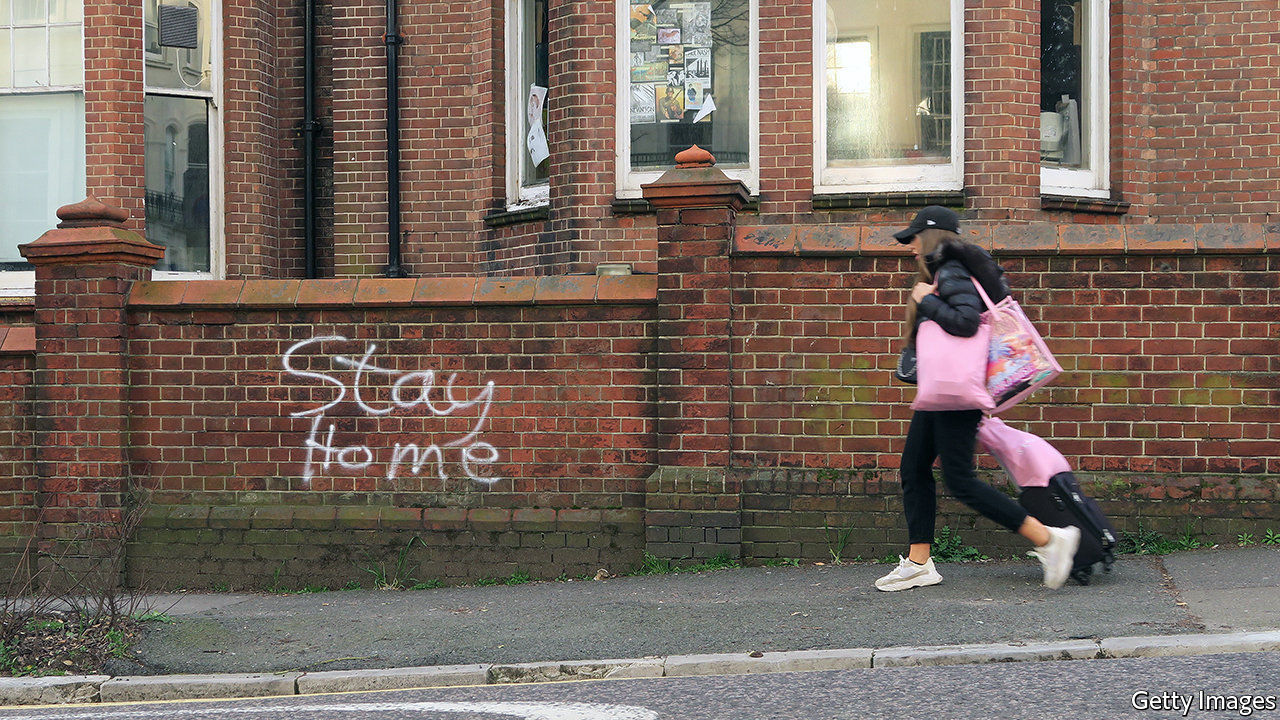 Stay
Home
Getty Images